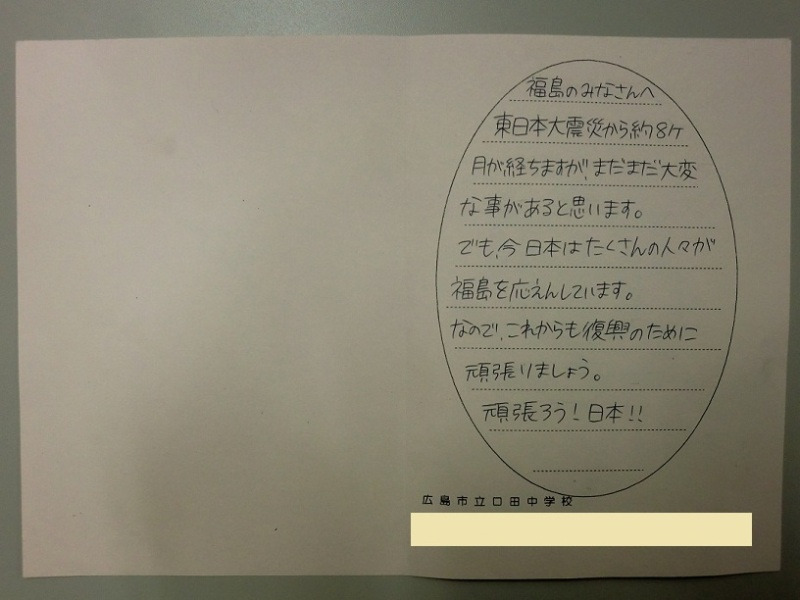 福島のみなさんへ
東日本大震災から約8ケ
月が経ちますが、まだまだ大変
な事があると思います。
でも、今日本はたくさんの人々が
福島を応えんしています。
なので、これからも復興のために
頑張りましょう。
頑張ろう!日本!!
広島市立口田中学校